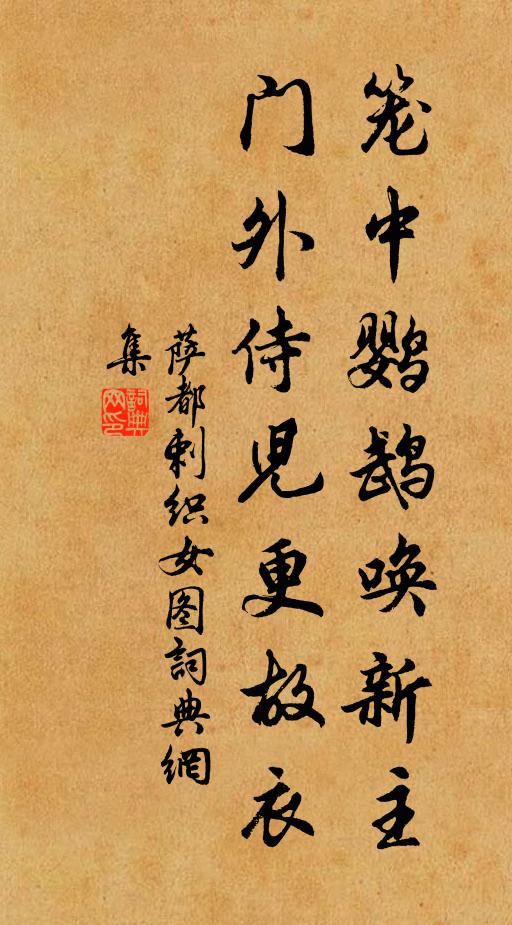 笼中鹦鹉唤新主
门外侍児更故衣
萨都剌织女图詞典網
集
詞典网印